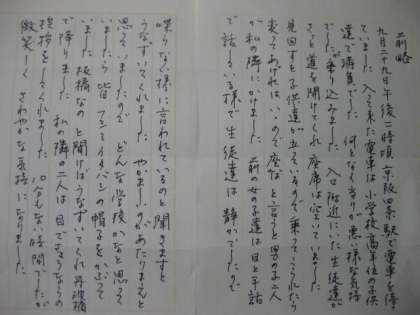 前略
九月二十九日午後一時頃 京阪四条駅で電車を待っ
ていました 入って来た電車は小学校高学年位の子供
達で満員でした 何となく乗りが悪い様な気持
でしたが乗り込みました 入口附近にいた生徒達が
さっと道を開けてくれ座席は空いていました
見回すと子供達が立っているので乗ってこられたら
来てあげればいいので座ると言うと男の子二人
が私の隣にかけました 前の女の子達は目と手話
で話している様で生徒達は静かでしたので
喋らない様に言われているのと聞きますと
うなずいてくれました やかましいのがあたりまえと
思っていましたので どんな学校かなと思って
いましたら皆フェニックタバンの帽子をかぶって
いました 板橋なのと聞けばうなずいてくれ丹波橋
で降りました 私の隣の二人は目でさようならの
挨拶をしてくれました 10分もない時間でしたが
微笑しく さわやかな気持になりました